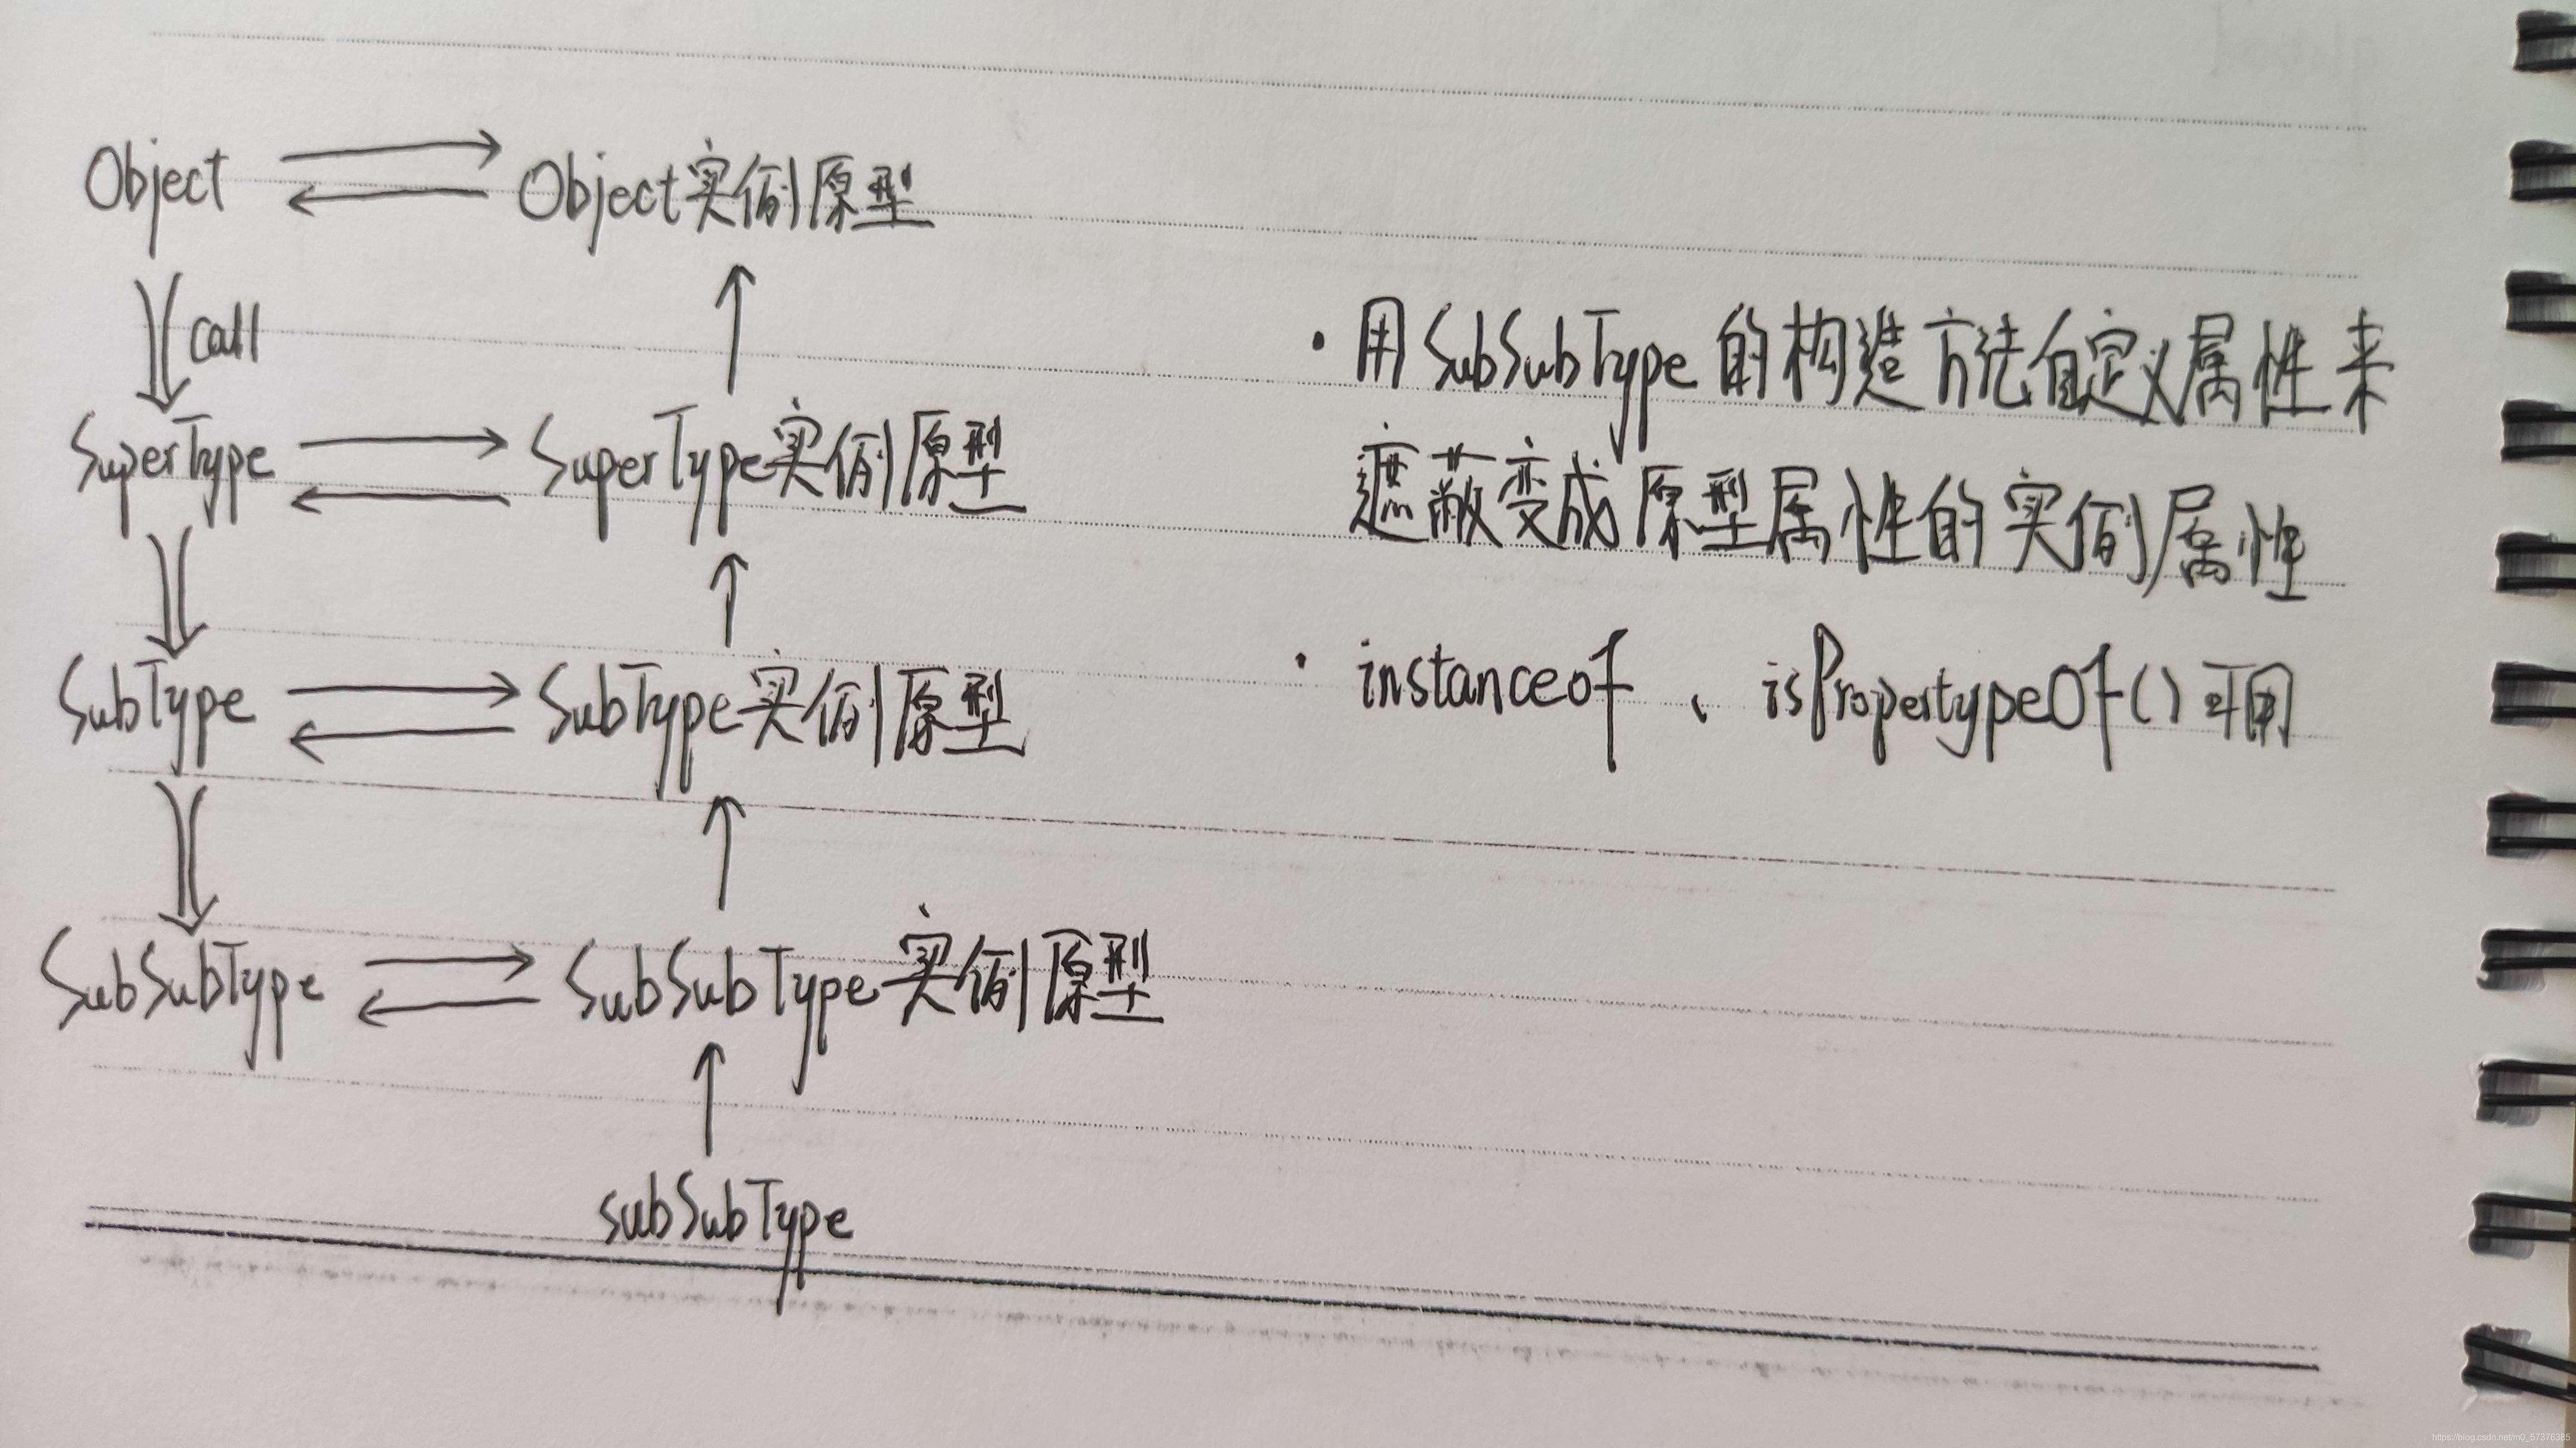 Object Object实例原型
call
SuperType SuperType实例原型
SubType SubType实例原型
SubSubType SubSubType实例原型
subSubType
·用SubSubType的构造方法自定义属性来
遮蔽变成原型属性的实例属性
·instanceof、isPropertypeOf()可用
https://blog.csdn.net/m0_57376385